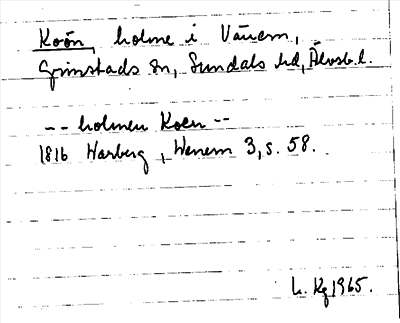 Koön, holme i Vänern,
Grinstads sn, Sundals hd, Älvsb. l.
-- holmen Koen --
1816 Warberg, Wenern 3, s. 58.
L. Kg 1965.